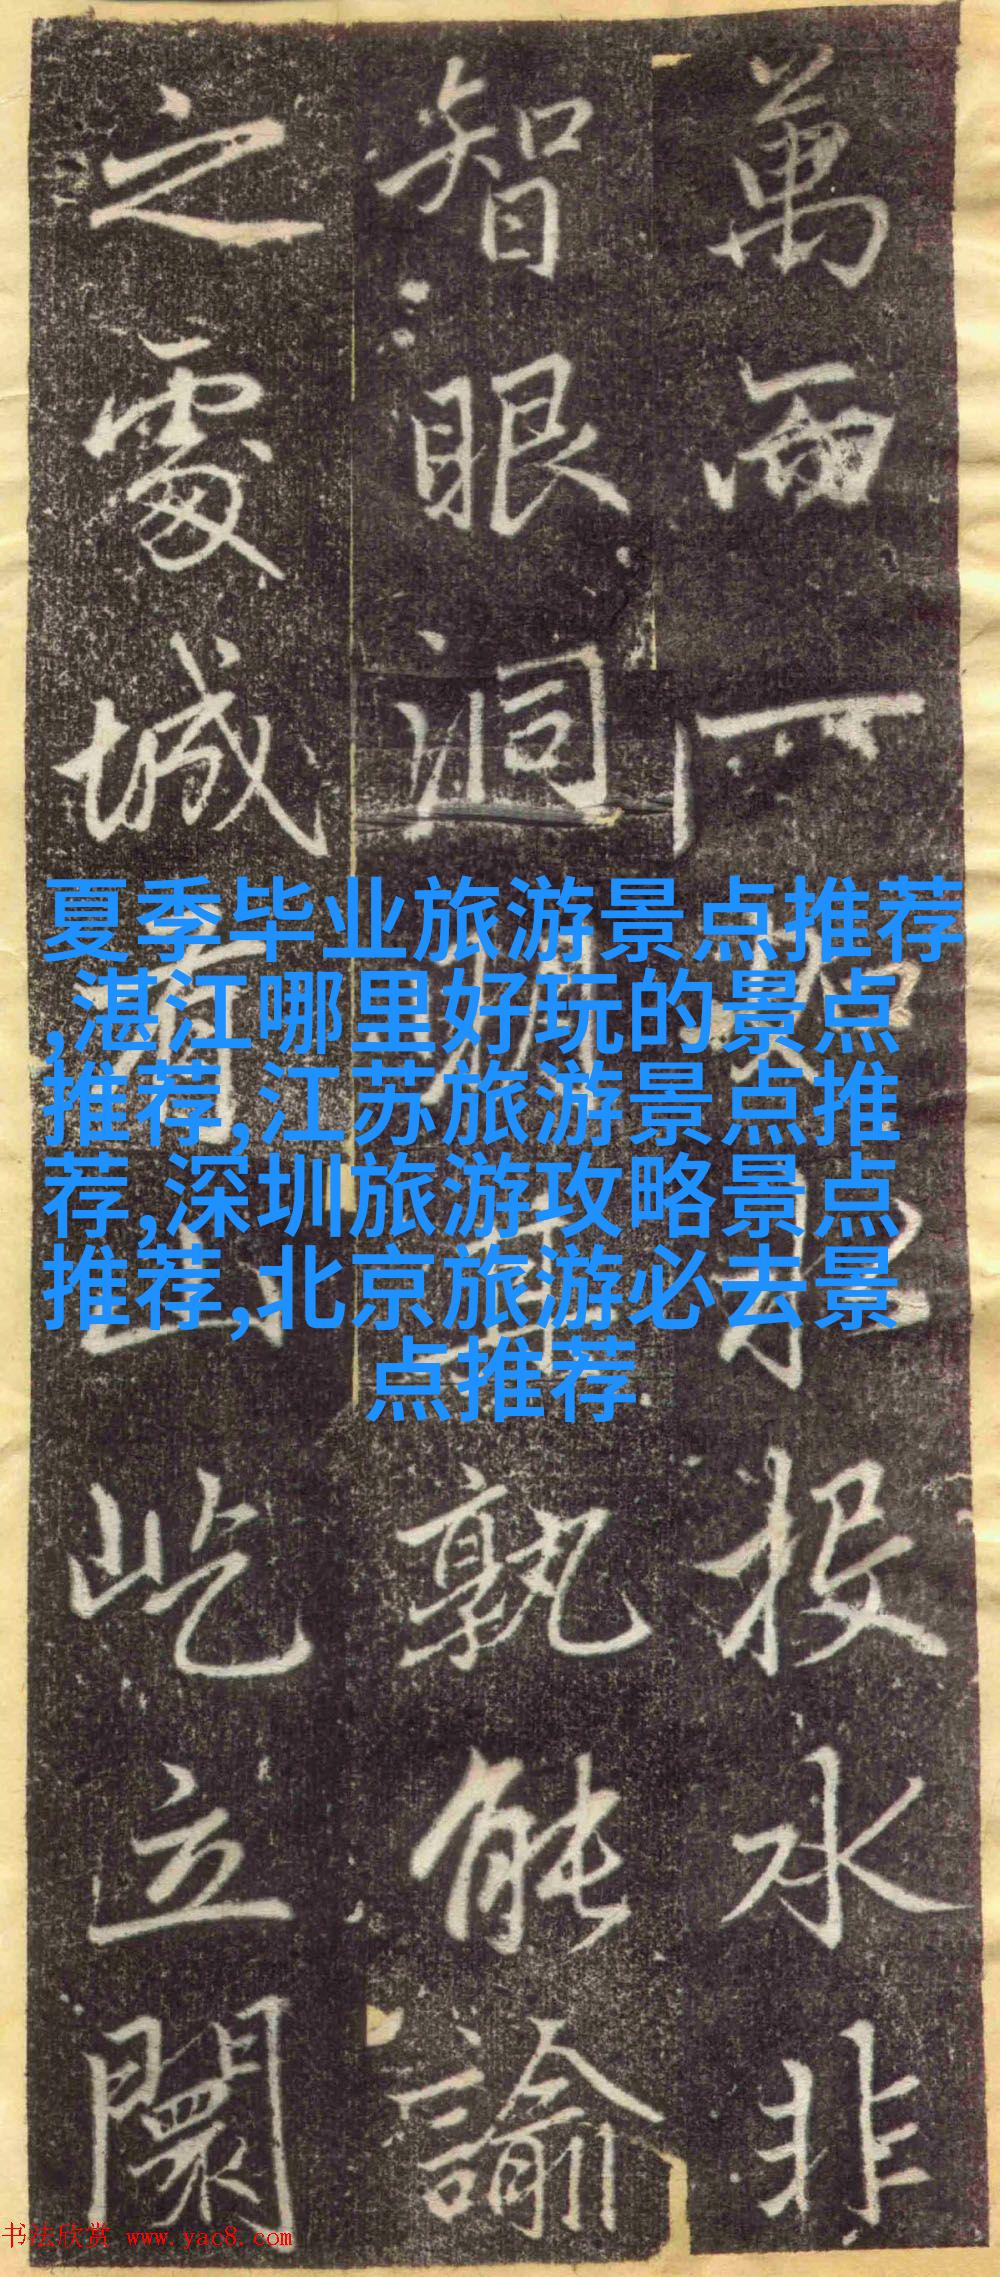 萬而一投水非
智眼洞明孰能諭
之處城山屹立闤
夏季毕业旅游景点推荐
,湛江哪里好玩的景点
推荐,江苏旅游景点推
荐,深圳旅游攻略景点
推荐,北京旅游必去景
点推荐
书法欣赏 www.yac8.com